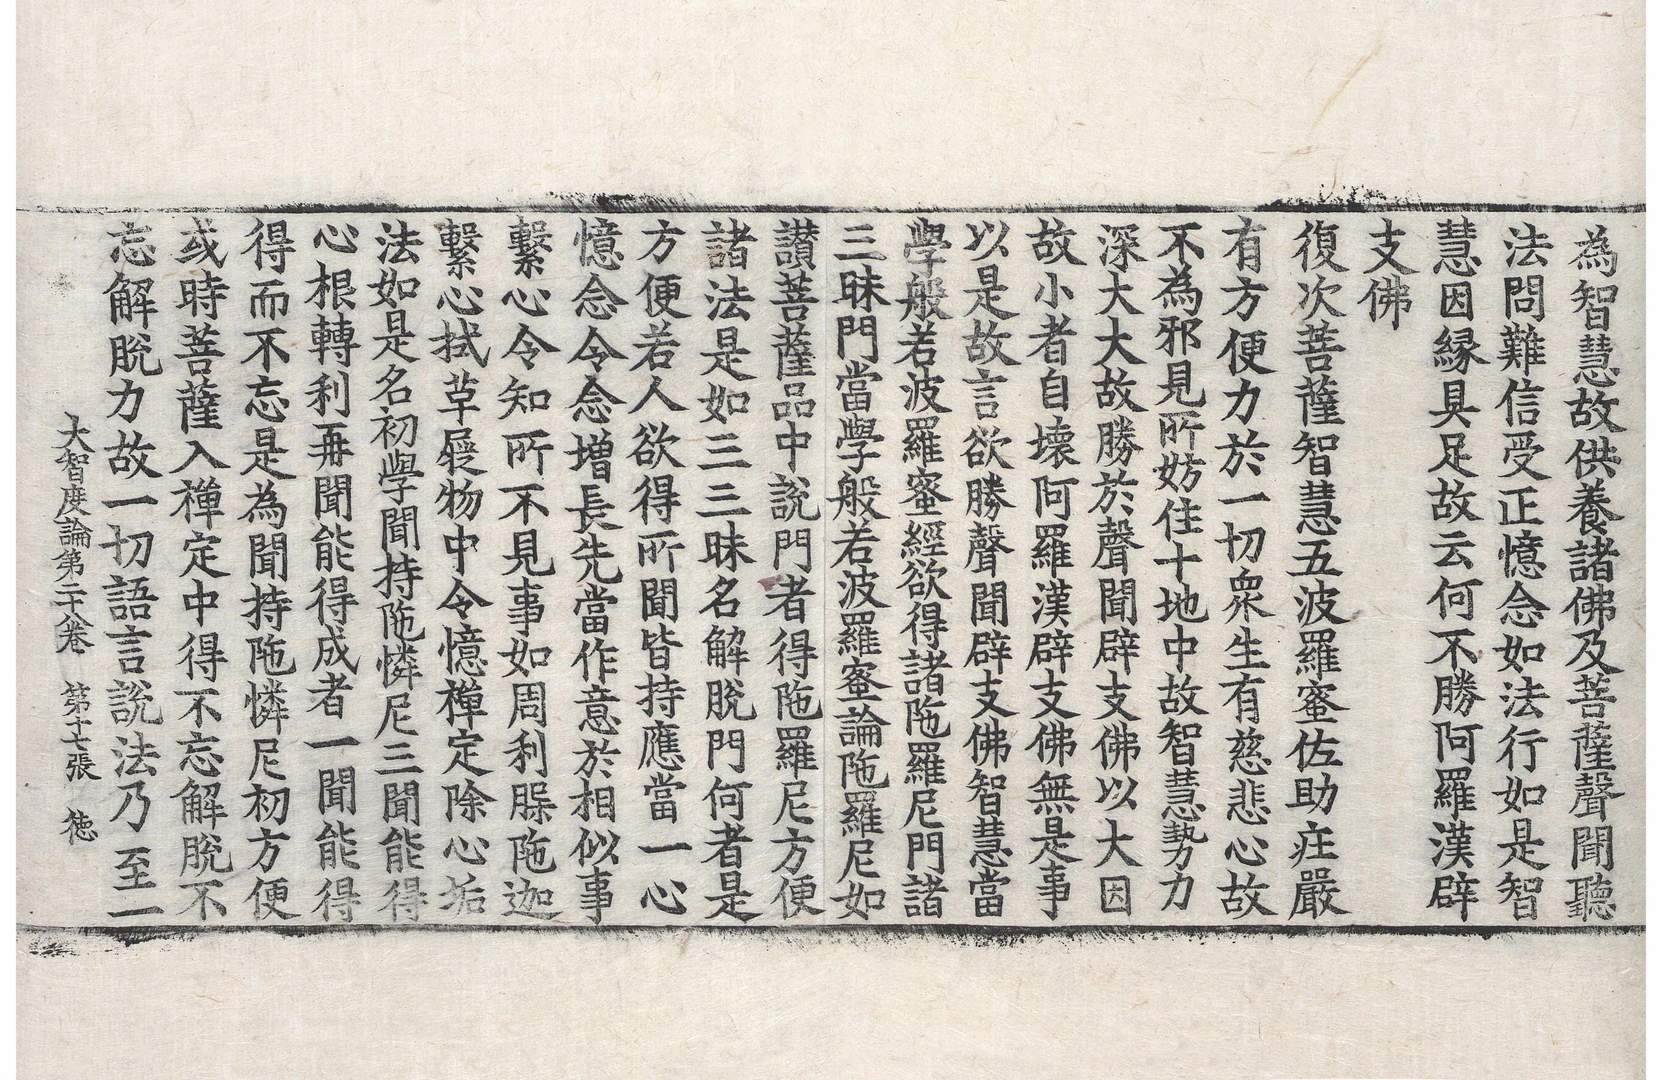 為智慧故供養諸佛及菩薩聲聞聽
法問難信受正憶念如法行如是智
慧因縁具足故云何不勝阿羅漢辟
支佛
復次菩薩智慧五波羅蜜佐助莊嚴
有方便力於一切衆生有慈悲心故
不為邪見所妨住十地中故智慧勢力
深大大故勝於聲聞辟支佛以大因
故小者自壞阿羅漢辟支佛無是事
以是故言欲勝聲聞辟支佛智慧當
學般若波羅蜜經欲得諸陁羅尼門諸
三昧門當學般若波羅蜜論陁羅尼如
讃菩薩品中說門者得陁羅尼方便
諸法是如三三昧名解脫門何者是
方便若人欲得所聞皆持應當一心
憶念令念增長先當作意於相似事
繫心令知所不見事如周利腂陁迦
繫心拭草屣物中令憶禅定除心垢
法如是名初學聞持陁憐尼三聞能得
心根轉利再聞能得成者一聞能得
得而不忘是為聞持陁憐尼初方便
或時菩薩入禅定中得不忘解脫不
忘解脫力故一切語言說法乃至一
大智度論第二十八卷 第十七張 徳